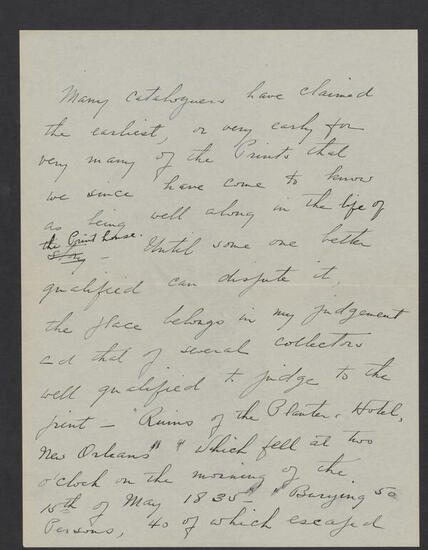 Many cataloguers have claimed
the earliest, or very early for
very many of the Prints that
we since have come to know
as being well along in the life of
the Print house.
Story — Until some one better
qualified can dispute it,
the place belongs in my judgement
and that of several collectors
well qualified to judge to the
print — "Ruins of the Planters Hotel,
New Orleans" "Which fell at two
o'clock on the morning of the
15th of May 1835 — "Burying 50
Persons, 40 of which escaped